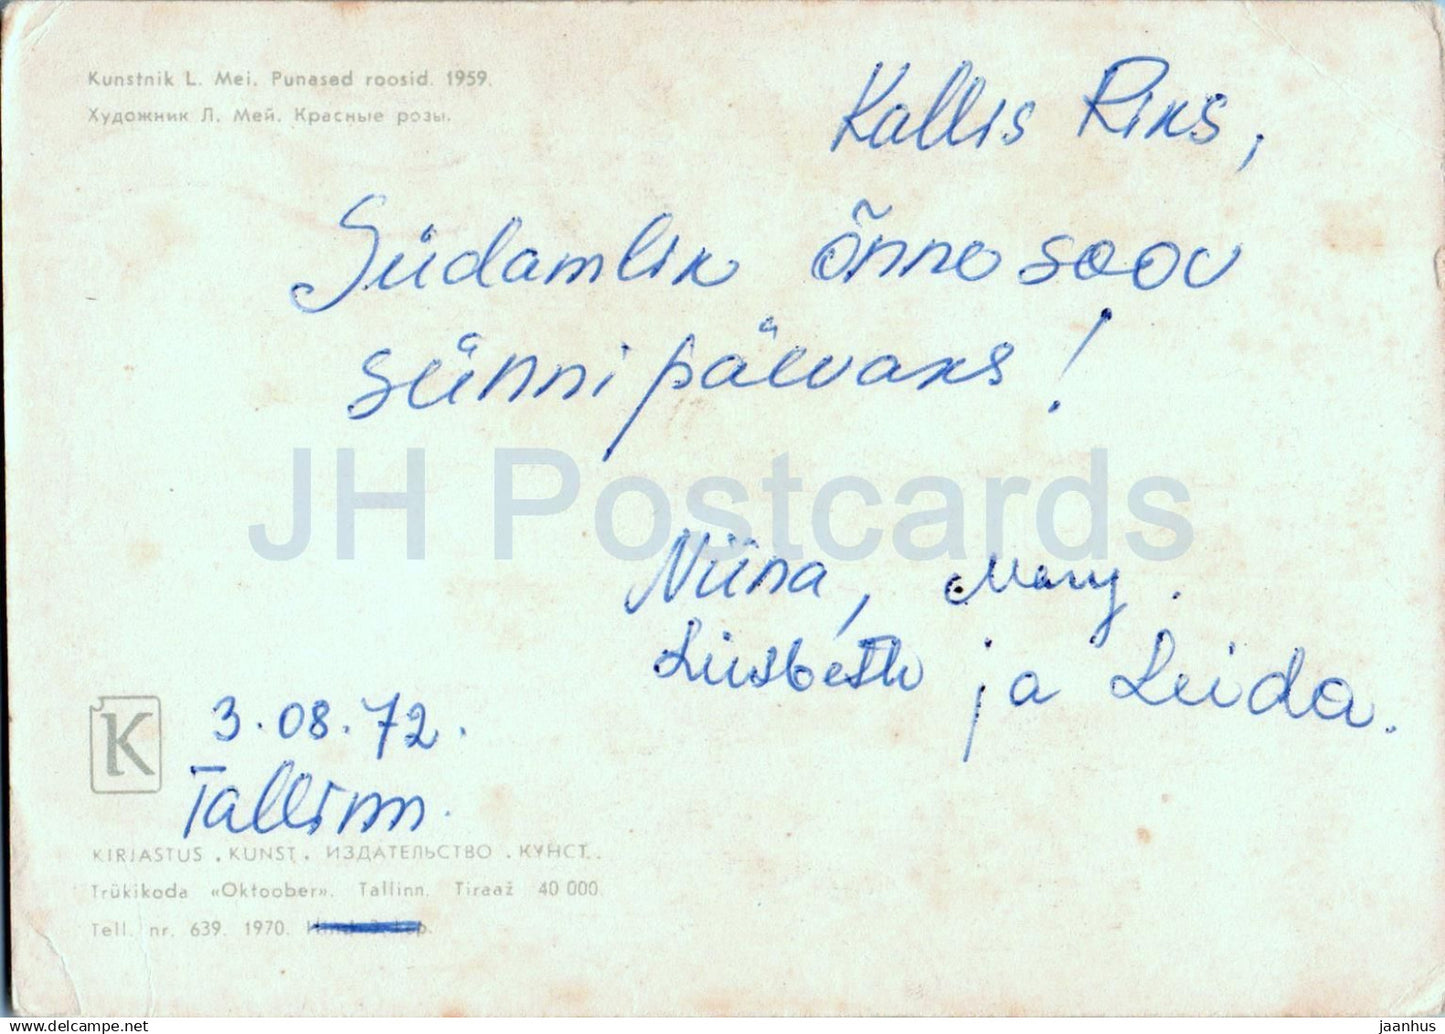 Kunstnik L. Mei. Punased roosid. 1959.
Художник Л. Мей. Красные розы.
Kallis Riks,
Südamlik õnne soov
sünni päevaks!
JH Postcards
Niina, Mary.
Liisbeth ja Leida.
K
3.08.72.
Tallinn.
KIRJASTUS „KUNST“. ИЗДАТЕЛЬСТВО „КУНСТ“.
Trükikoda «Oktoober». Tallinn. Tiraaž 40 000.
Tell. nr. 639. 1970.
www.jaanhus.com
jaanhus